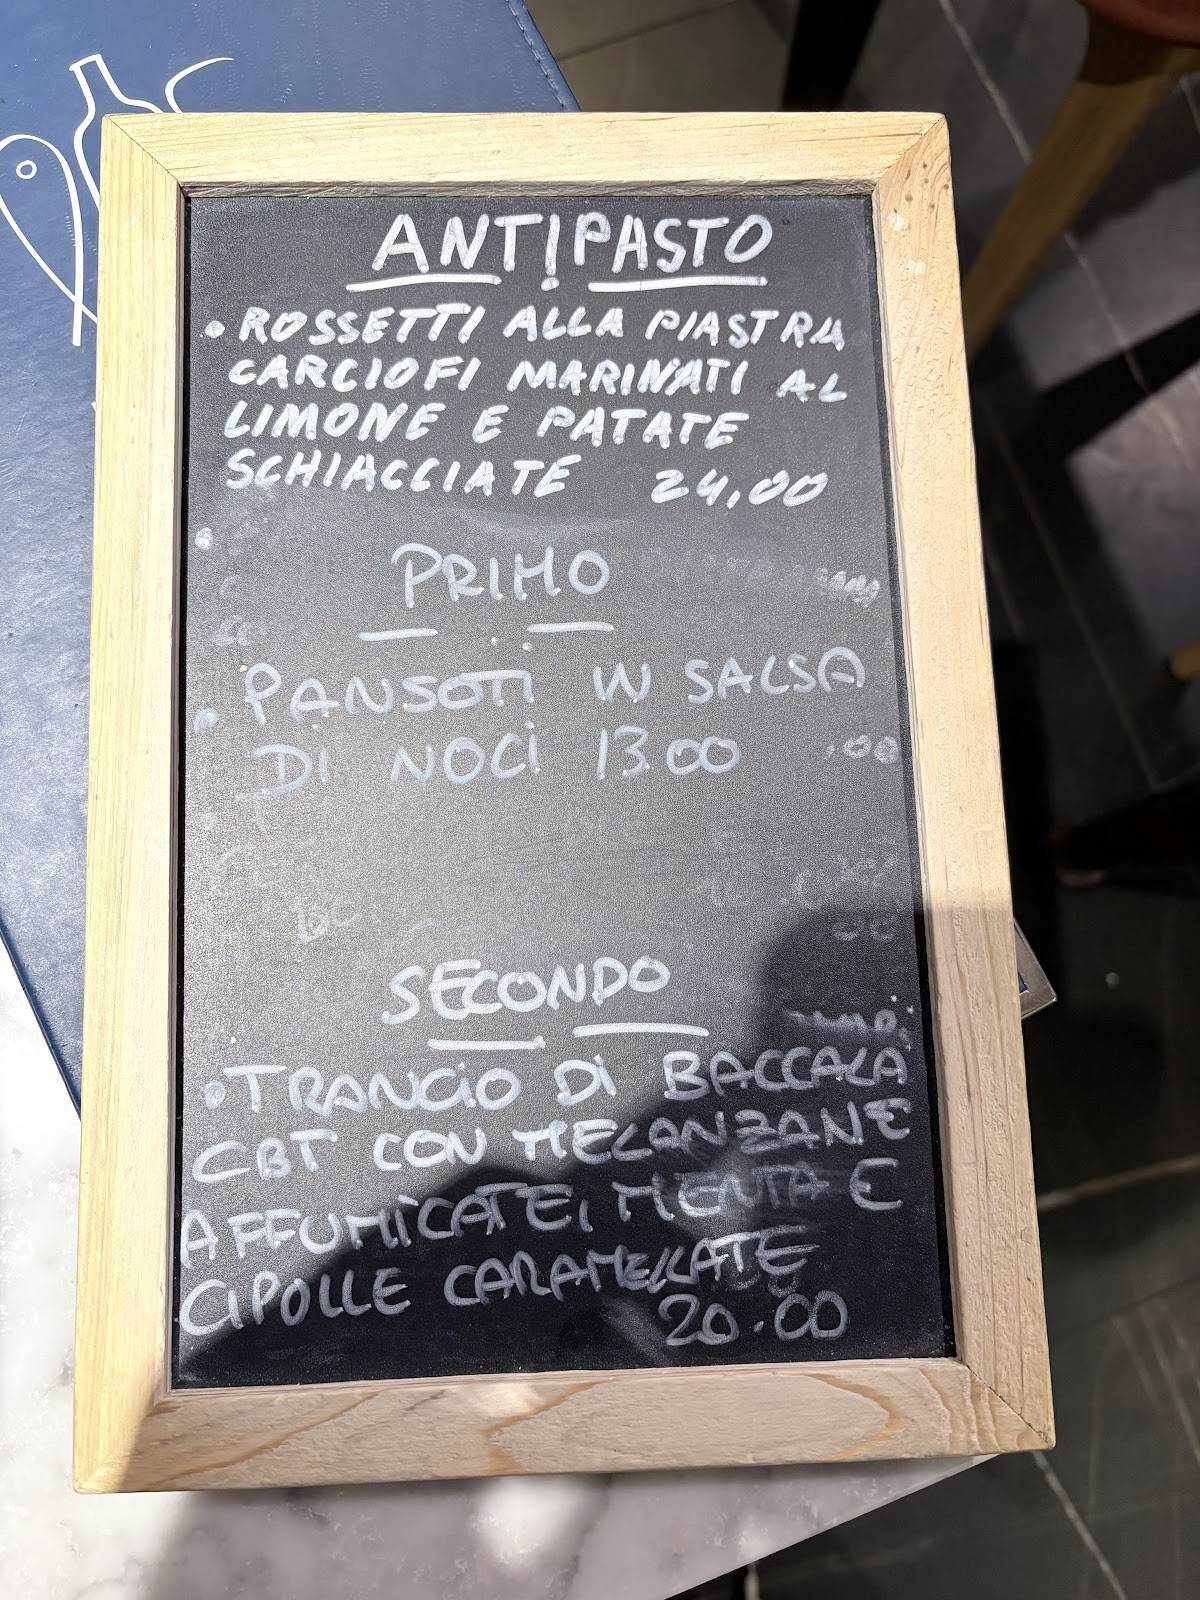 ANTIPASTO
• ROSSETTI ALLA PIASTRA
CARCIOFI MARINATI AL
LIMONE E PATATE
SCHIACCIATE 24,00
PRIMO
• PANSOTI IN SALSA
DI NOCI 13.00
SECONDO
• TRANCIO DI BACCALA
CBT CON MELANZANE
AFFUMICATE, MENTA E
CIPOLLE CARAMELLATE
20.00